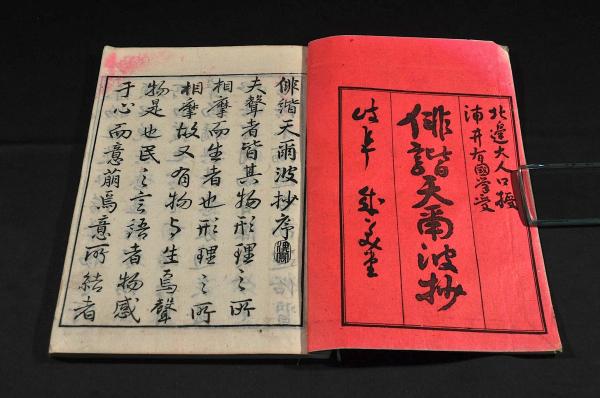 北邊大人口授
浦井有國筆受
俳諧天爾波抄
岐阜 成美堂
俳諧天爾波抄序
夫聲者皆其物形理之所
相摩而生者也形理之所
相摩故又有物与生焉聲
物是也民之言語者物感
于心而意萌焉意所結者